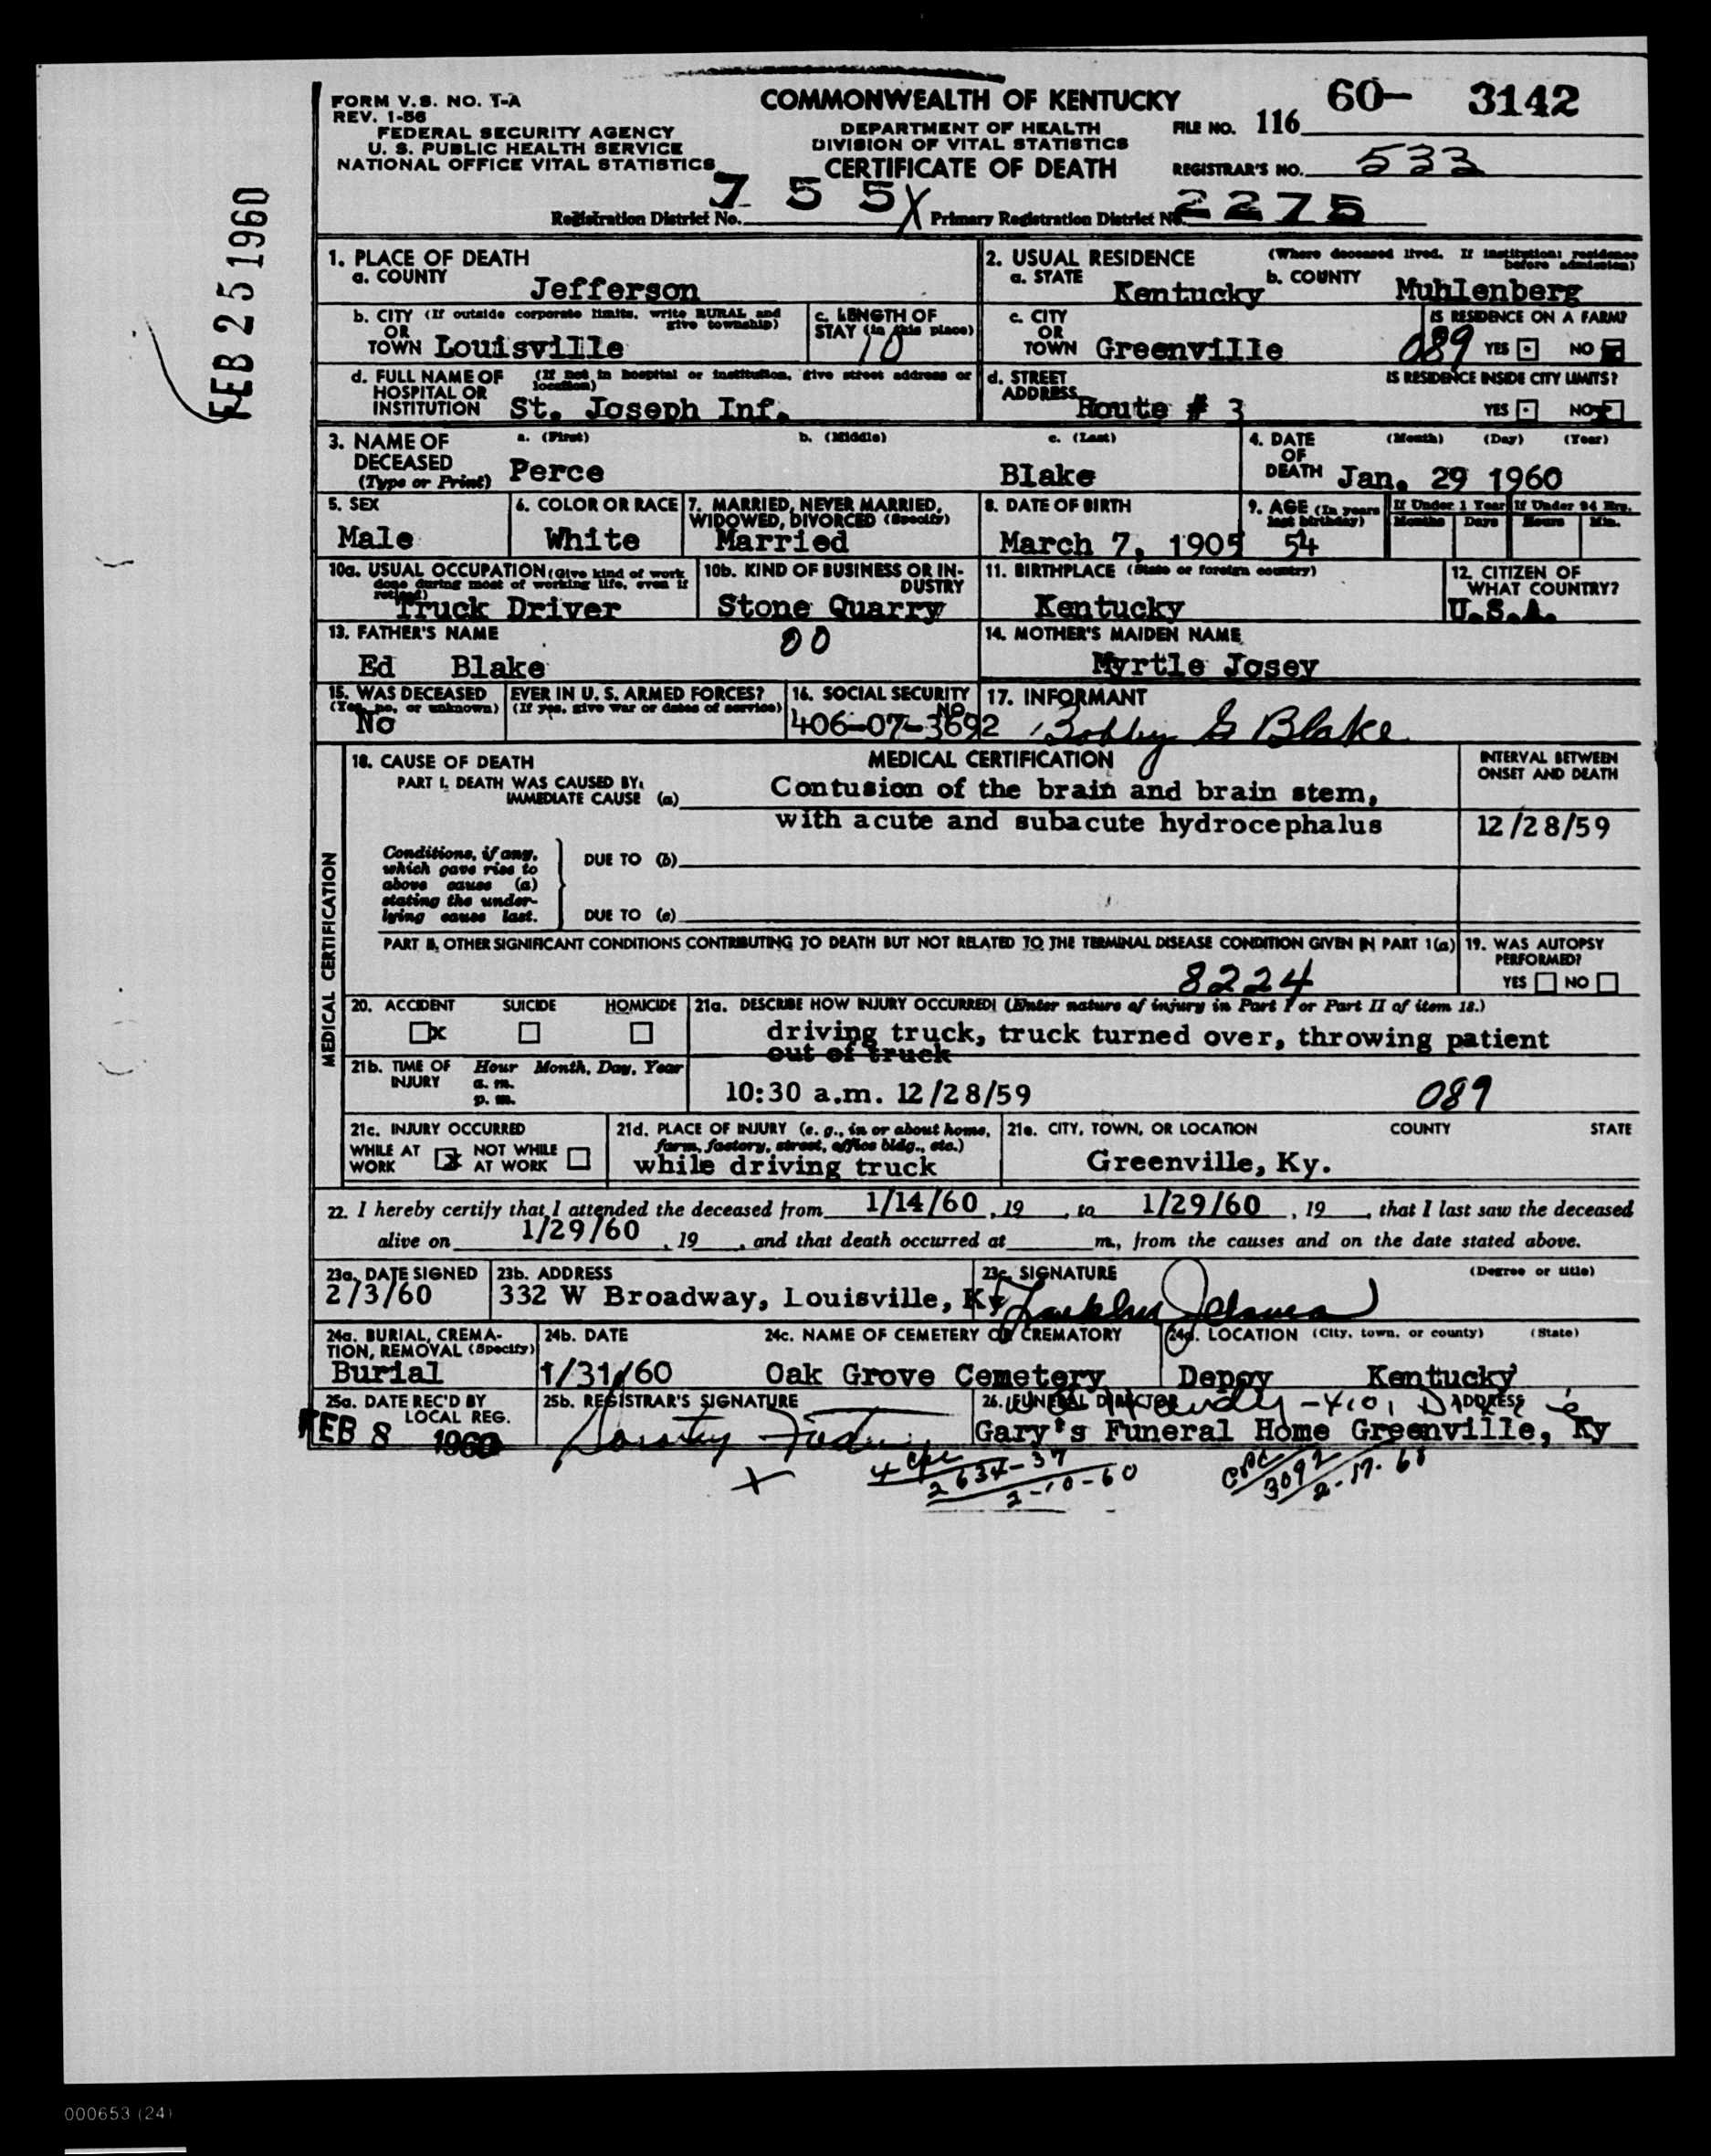 FORM V.S. NO. 1-A
REV. 1-56
FEDERAL SECURITY AGENCY
U. S. PUBLIC HEALTH SERVICE
NATIONAL OFFICE VITAL STATISTICS
COMMONWEALTH OF KENTUCKY
DEPARTMENT OF HEALTH
DIVISION OF VITAL STATISTICS
CERTIFICATE OF DEATH
FILE NO. 116 60- 3142
REGISTRAR'S NO. 533
Registration District No. 755X Primary Registration District No. 2275
FEB 25 1960
1. PLACE OF DEATH
a. COUNTY Jefferson
2. USUAL RESIDENCE (Where deceased lived. If institution: residence before admission)
a. STATE Kentucky b. COUNTY Muhlenberg
b. CITY (If outside corporate limits, write RURAL and give township)
OR TOWN Louisville
c. LENGTH OF STAY (in this place) 10
c. CITY OR TOWN Greenville
089
IS RESIDENCE ON A FARM?
YES NO
d. FULL NAME OF HOSPITAL OR INSTITUTION (If not in hospital or institution, give street address or location)
St. Joseph Inf.
d. STREET ADDRESS Route # 3
IS RESIDENCE INSIDE CITY LIMITS?
YES NO
3. NAME OF DECEASED (Type or Print)
a. (First) Perce b. (Middle) c. (Last) Blake
4. DATE OF DEATH (Month) (Day) (Year)
Jan. 29 1960
5. SEX
Male
6. COLOR OR RACE
White
7. MARRIED, NEVER MARRIED, WIDOWED, DIVORCED (Specify)
Married
8. DATE OF BIRTH
March 7, 1905
9. AGE (In years last birthday)
54
If Under 1 Year If Under 24 Hrs.
Months Days Hours Min.
10a. USUAL OCCUPATION (Give kind of work done during most of working life, even if retired)
Truck Driver
10b. KIND OF BUSINESS OR INDUSTRY
Stone Quarry
11. BIRTHPLACE (State or foreign country)
Kentucky
12. CITIZEN OF WHAT COUNTRY?
U.S.A.
13. FATHER'S NAME
Ed Blake
00
14. MOTHER'S MAIDEN NAME
Myrtle Josey
15. WAS DECEASED EVER IN U. S. ARMED FORCES?
(Yes, no, or unknown) (If yes, give war or dates of service)
No
16. SOCIAL SECURITY NO.
406-07-3692
17. INFORMANT
Bobby G Blake
MEDICAL CERTIFICATION
18. CAUSE OF DEATH
MEDICAL CERTIFICATION
INTERVAL BETWEEN ONSET AND DEATH
PART I. DEATH WAS CAUSED BY:
IMMEDIATE CAUSE (a) Contusion of the brain and brain stem,
with acute and subacute hydrocephalus 12/28/59
Conditions, if any, which gave rise to above cause (a) stating the underlying cause last.
DUE TO (b)
DUE TO (c)
PART II. OTHER SIGNIFICANT CONDITIONS CONTRIBUTING TO DEATH BUT NOT RELATED TO THE TERMINAL DISEASE CONDITION GIVEN IN PART 1(a)
8224
19. WAS AUTOPSY PERFORMED?
YES NO
20. ACCIDENT SUICIDE HOMICIDE
x
21a. DESCRIBE HOW INJURY OCCURRED! (Enter nature of injury in Part I or Part II of item 18.)
driving truck, truck turned over, throwing patient
out of truck
21b. TIME OF INJURY Hour Month, Day, Year
a. m.
p. m.
10:30 a.m. 12/28/59
089
21c. INJURY OCCURRED
WHILE AT WORK x NOT WHILE AT WORK
21d. PLACE OF INJURY (e. g., in or about home, farm, factory, street, office bldg., etc.)
while driving truck
21e. CITY, TOWN, OR LOCATION COUNTY STATE
Greenville, Ky.
22. I hereby certify that I attended the deceased from 1/14/60, 19 , to 1/29/60, 19 , that I last saw the deceased
alive on 1/29/60, 19 , and that death occurred at m., from the causes and on the date stated above.
23a. DATE SIGNED
2/3/60
23b. ADDRESS
332 W Broadway, Louisville, Ky
23c. SIGNATURE (Degree or title)
24a. BURIAL, CREMATION, REMOVAL (Specify)
Burial
24b. DATE
1/31/60
24c. NAME OF CEMETERY OR CREMATORY
Oak Grove Cemetery
24d. LOCATION (City, town, or county) (State)
Depoy Kentucky
25a. DATE REC'D BY LOCAL REG.
FEB 8 1960
25b. REGISTRAR'S SIGNATURE
Dorothy
26. FUNERAL DIRECTOR ADDRESS
Gary's Funeral Home Greenville, Ky
4 cpc
2634-37
2-10-60
cpc
3092
2-17-60
000653 (24)